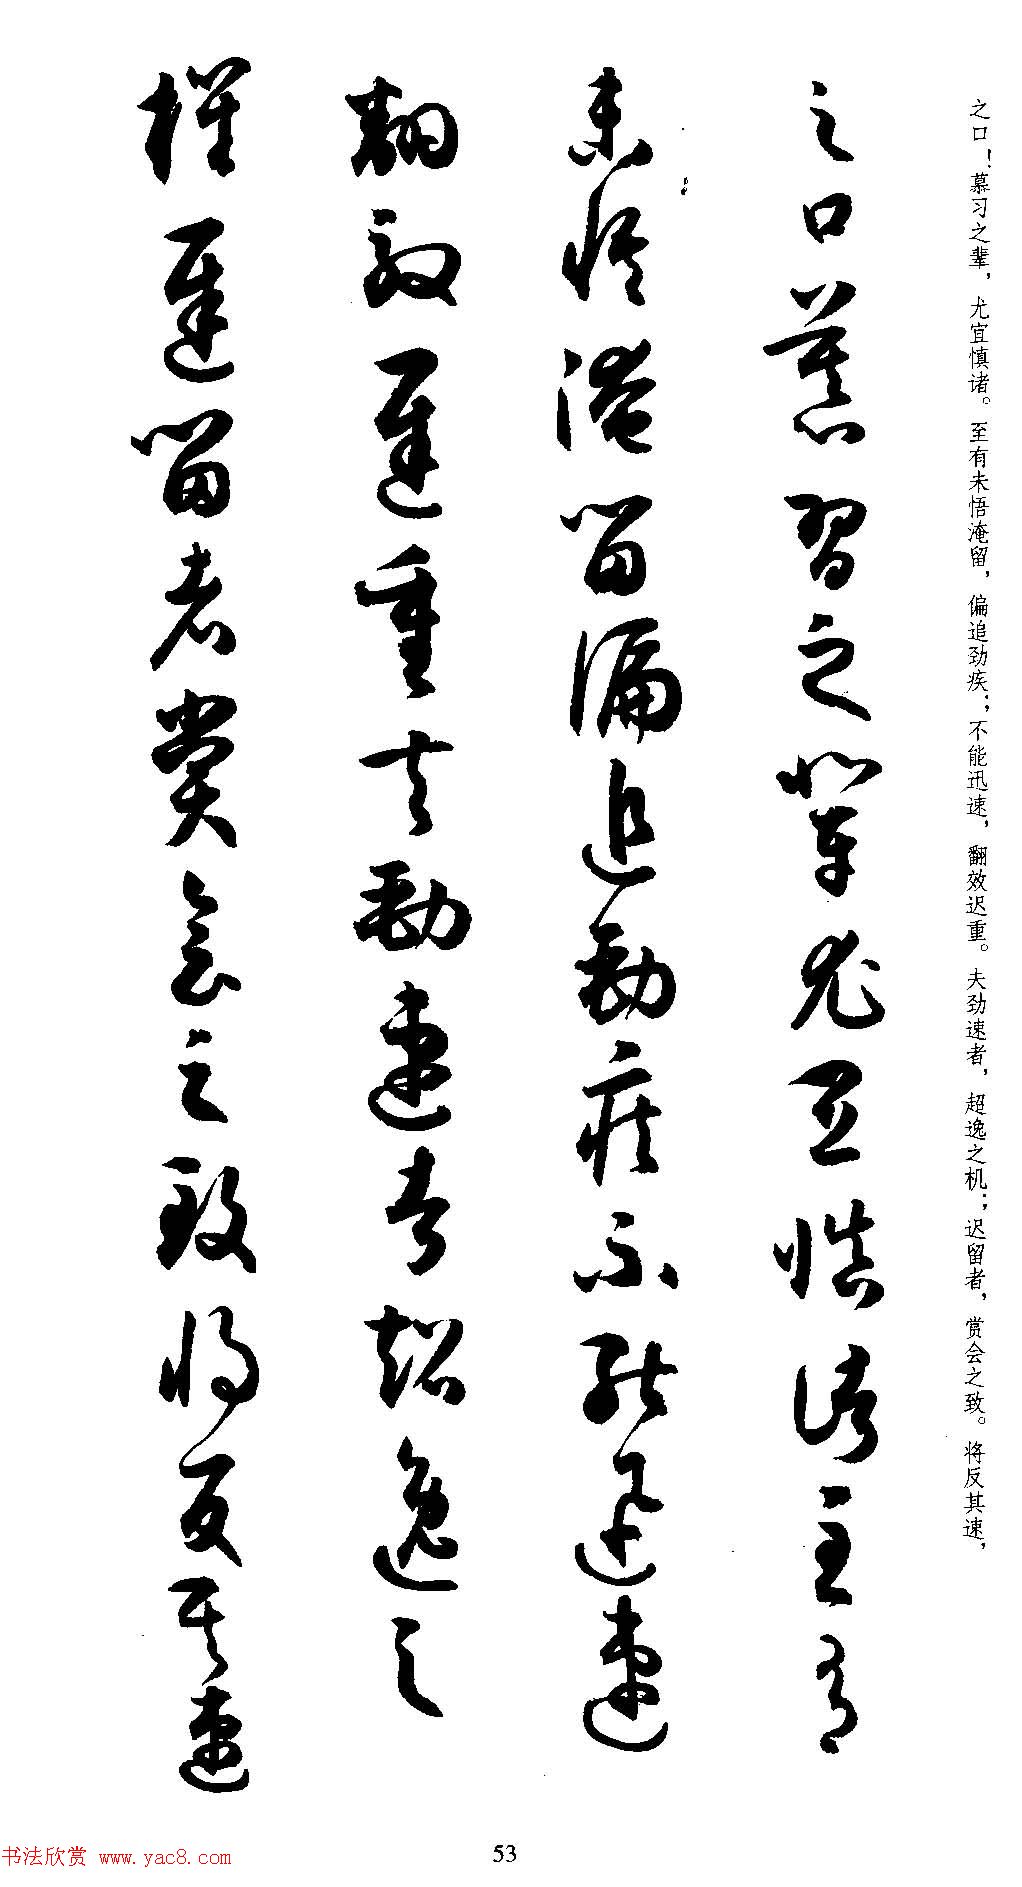 之口！慕习之辈，尤宜慎诸。至有未悟淹留，偏追劲疾；不能迅速，翻效迟重。夫劲速者，超逸之机；迟留者，赏会之致。将反其速，
之口慕習之輩尤宜慎諸至有
未悟淹留偏追勁疾不能迅速
翻效遲重夫勁速者超逸之
機遲留者賞會之致將反其速
53
书法欣赏 www.yac8.com